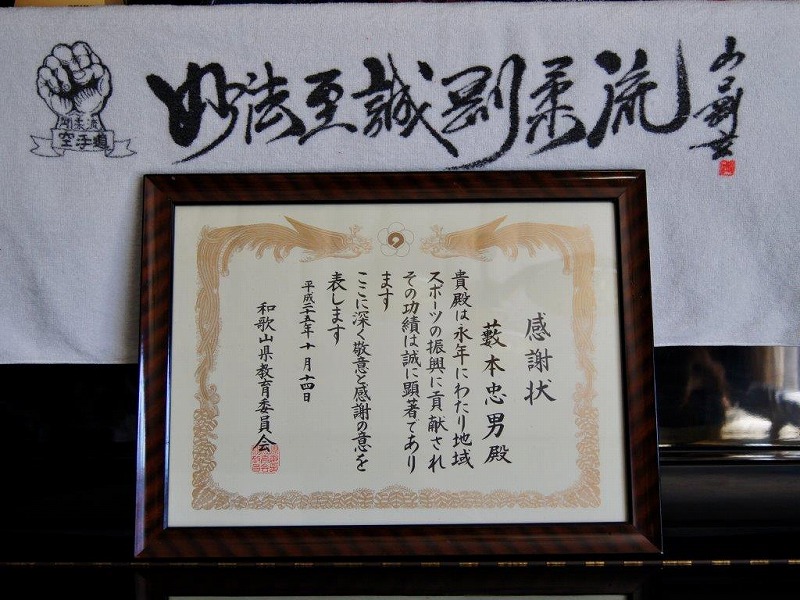 妙法至誠剛柔流
山口剛玄
剛柔流
空手道
感謝状
藪本忠男殿
貴殿は永年にわたり地域
スポーツの振興に貢献され
その功績は誠に顕著であり
ます
ここに深く敬意と感謝の意を
表します
平成二十五年十月十四日
和歌山県教育委員会